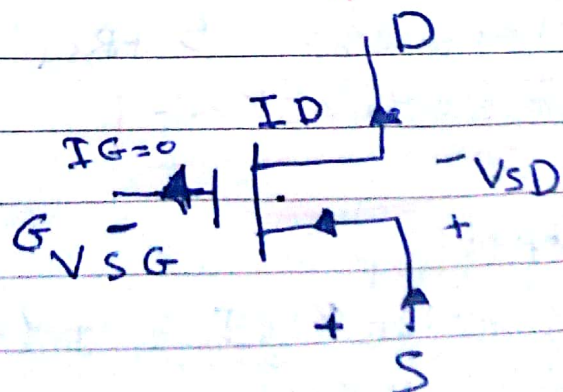 D
ID
IG=0
- VSD
G -
VSG
+
+
S